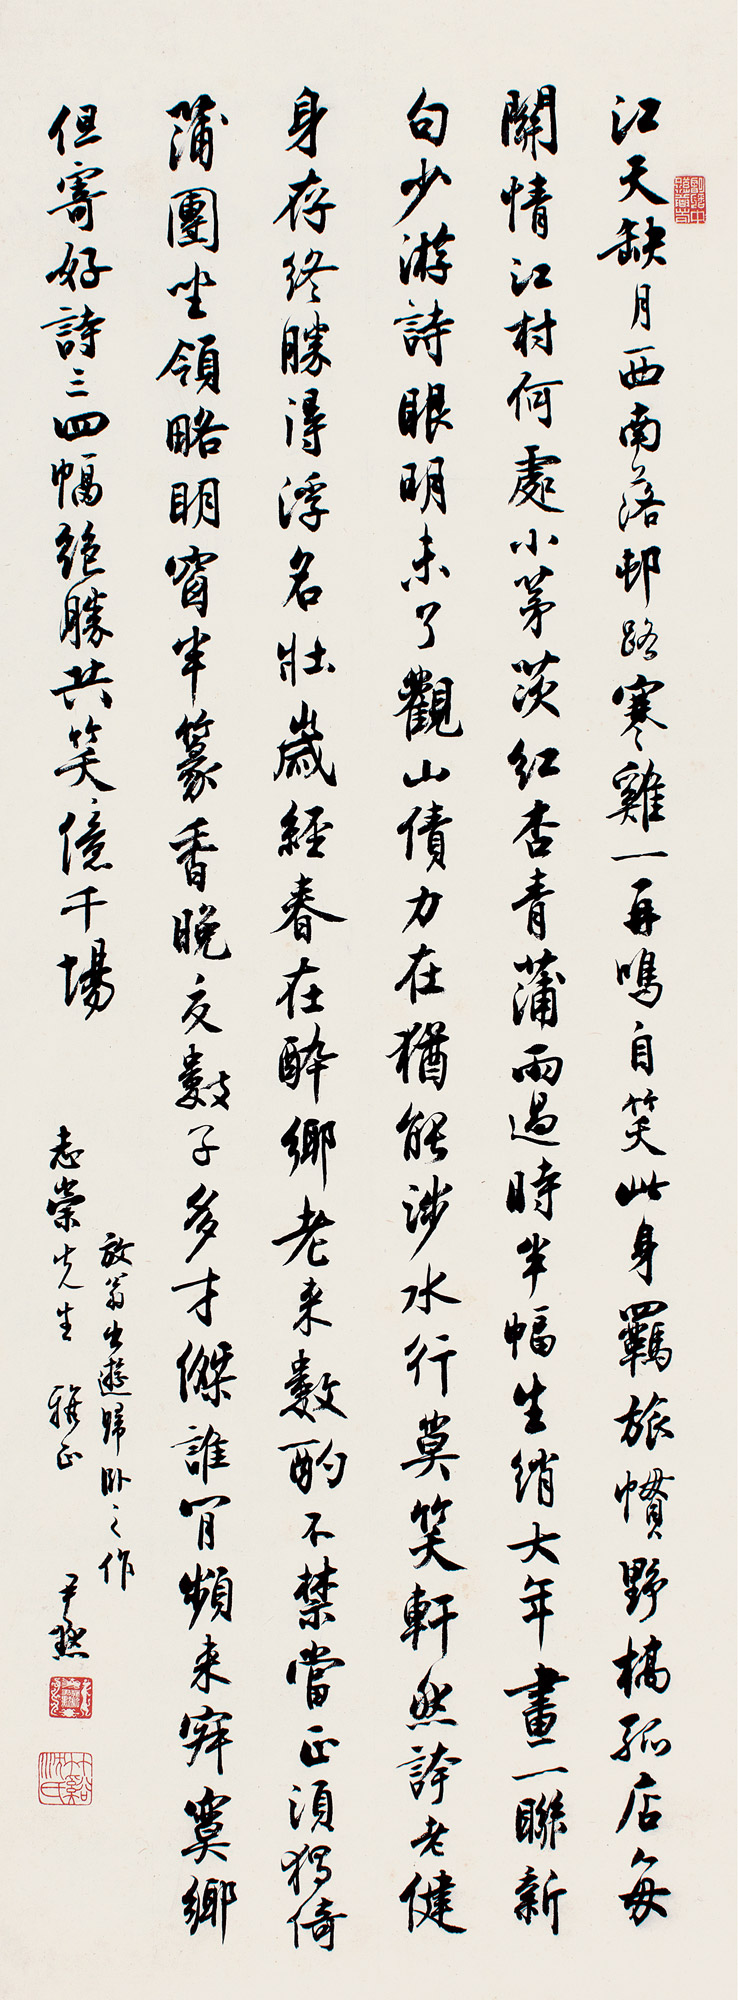 江天缺月西南落邨路寒雞一再鳴自笑此身羈旅慣野橋孤店每
關情江村何處小茅茨紅杏青蒲雨過時半幅生綃大年畫一聯新
句少游詩眼明未了觀山債力在猶能涉水行莫笑軒然誇老健
身存終勝得浮名壯歲經春在醉鄉老來數酌不禁當正須獨倚
蒲團坐領略明窗半篆香晚交數子多才傑誰肯頻來寂寞鄉
但寄好詩三四幅絕勝共笑億千場
放翁出遊歸臥之作
志崇先生 雅正
尹默
竹谿沈氏